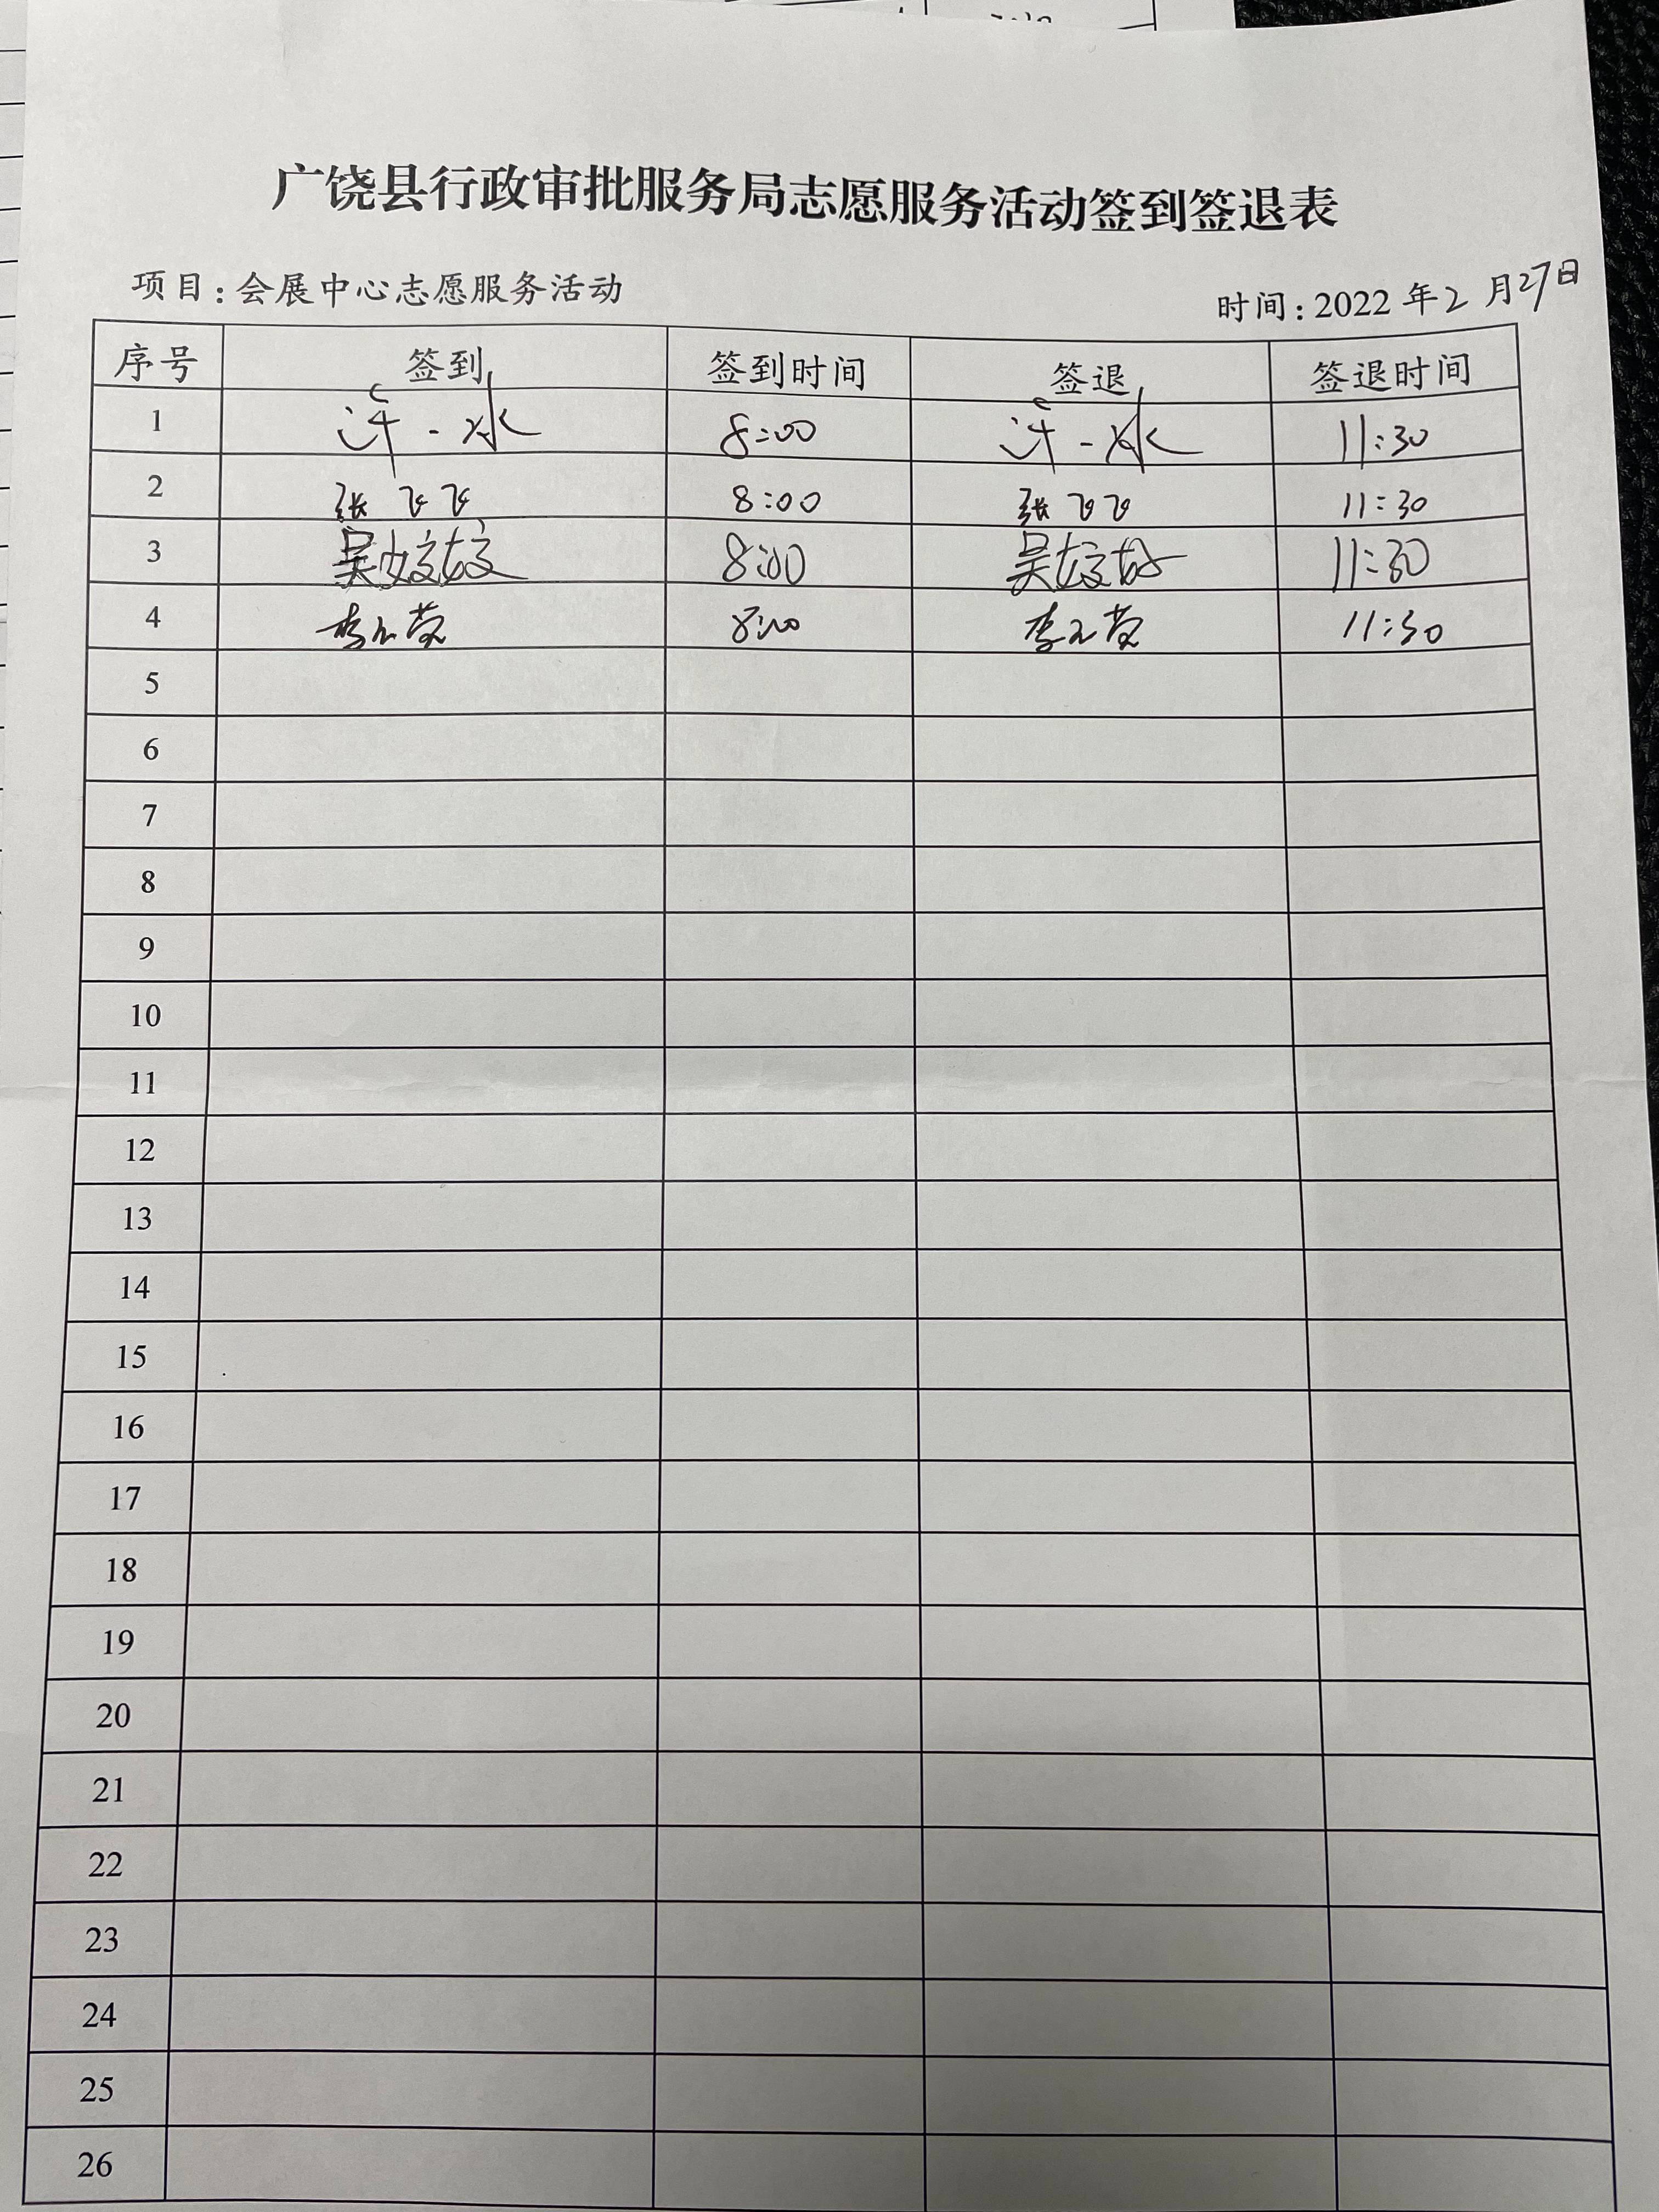 广饶县行政审批服务局志愿服务活动签到签退表
项目:会展中心志愿服务活动 时间:2022年2月27日
序号 签到 签到时间 签退 签退时间
1 许一冰 8:00 许一冰 11:30
2 张飞飞 8:00 张飞飞 11:30
3 吴姣姣 8:00 吴姣姣 11:30
4 8:00 11:30
5
6
7
8
9
10
11
12
13
14
15
16
17
18
19
20
21
22
23
24
25
26